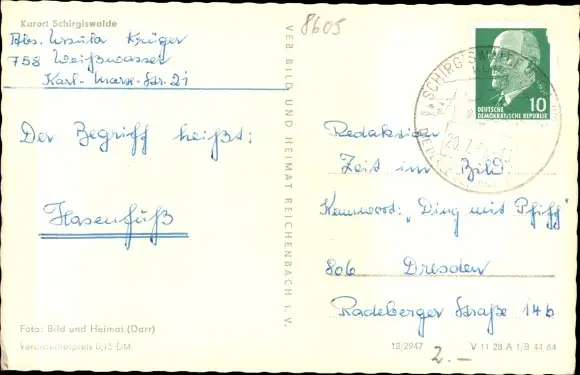 Kurort Schirgiswalde
Abs. Ursula Krüger
758 Weißwasser
Karl-Marx-Str. 21
Der Begriff heißt:
Hasenfuß
Foto: Bild und Heimat (Darr)
Verbraucherpreis 0,15 DM
VEB BILD UND HEIMAT REICHENBACH I. V.
8605
SCHIRGISWALDE
20.7.
DEUTSCHE
DEMOKRATISCHE REPUBLIK
10
Redaktion
Zeit im Bild
Kennword: „Ding mit Pfiff"
806 Dresden
Radeberger Straße 14b
12/2947
V 11 28 A 1/B 44/64
2.-